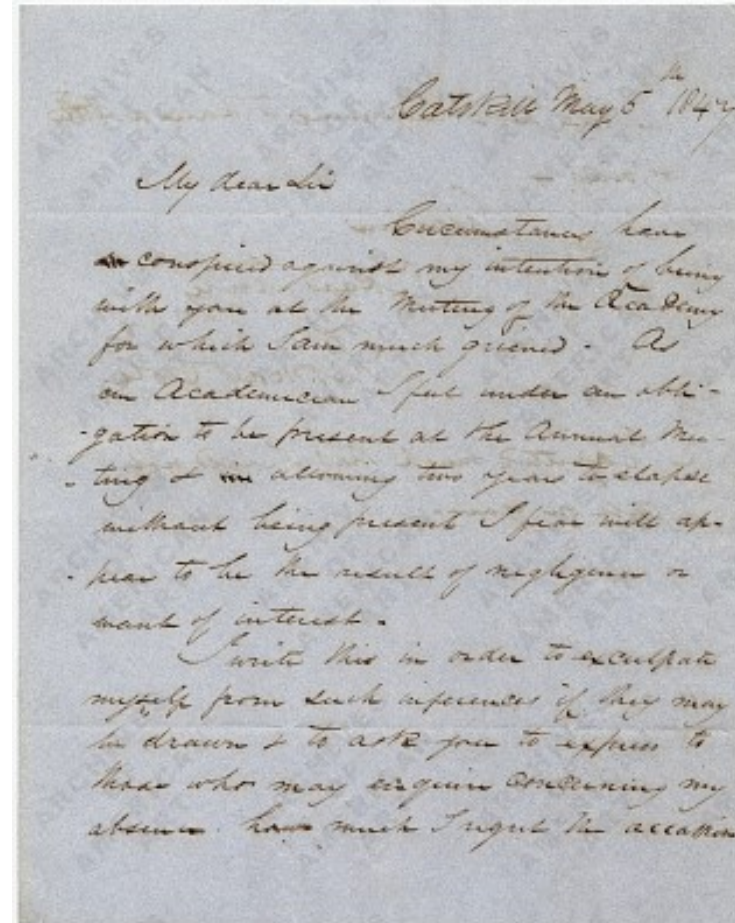 Catskill May 5th 1847
My dear Sir
Circumstances have
conspired against my intention of being
with you at the Meeting of the Academy
for which I am much grieved - As
an Academician I feel under an obli-
-gation to be present at the Annual Mee-
-ting & allowing two years to elapse
without being present I fear will ap-
-pear to be the result of negligence or
want of interest.
I write this in order to exculpate
myself from such inferences if they may
be drawn & to ask you to express to
those who may enquire concerning my
absence how much I regret the occasion